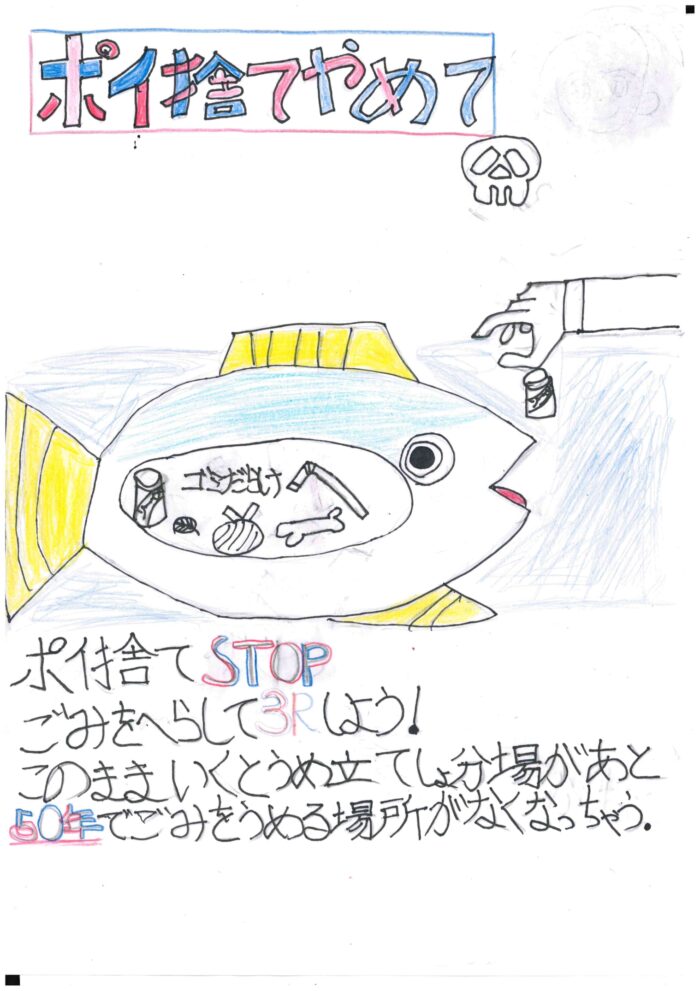 ポイ捨てやめて
ゴミだらけ
ポイ捨てSTOP
ごみをへらして3Rしよう!
このままいくとうめ立てしょ分場があと
50年でごみをうめる場所がなくなっちゃう.